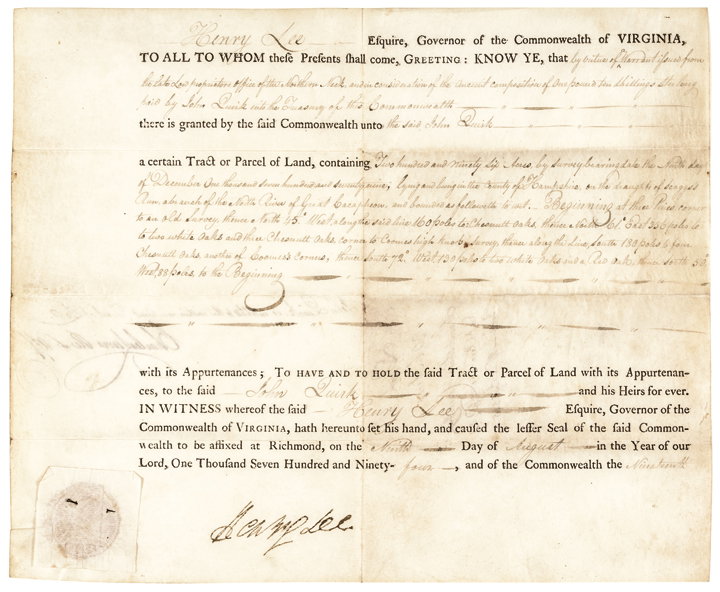 Henry Lee Esquire, Governor of the Commonwealth of VIRGINIA,
TO ALL TO WHOM these Presents shall come, GREETING: KNOW YE, that by virtue of Warrant issued from
the late Lord proprietors office of the Northern Neck, and in consideration of the Ancient composition of One pound ten shillings Sterling
paid by John Quirk into the Treasury of this Commonwealth
there is granted by the said Commonwealth unto the said John Quirk
a certain Tract or Parcel of Land, containing Two hundred and Ninety Six Acres, by survey bearing date the Ninth day
of December One thousand seven hundred and seventy nine, lying and being in the County of Hampshire, on the draughts of
Run a branch of the North River of Great Cacapehon, and bounded as followeth to wit. Beginning at three Pines, corner
to an old Survey, thence North 45° West along the said line 160 poles to Chesnutt Oaks, thence North 61° East 356 poles
to two white Oaks and three Chesnutt Oaks, corner to Coomes high Knob Survey, thence along the Line, South 180 poles to four
Chesnutt Oaks, another of Coomes's corners, thence South 72° West 130 poles to two white Oaks and a Red Oak, thence South 56°
West, 88 poles, to the Beginning
with its Appurtenances; TO HAVE AND TO HOLD the said Tract or Parcel of Land with its Appurtenan-
ces, to the said John Quirk and his Heirs for ever.
IN WITNESS whereof the said Henry Lee Esquire, Governor of the
Commonwealth of VIRGINIA, hath hereunto set his hand, and caused the lesser Seal of the said Common-
wealth to be affixed at Richmond, on the Ninth Day of August in the Year of our
Lord, One Thousand Seven Hundred and Ninety- four, and of the Commonwealth the Nineteenth
Henry Lee